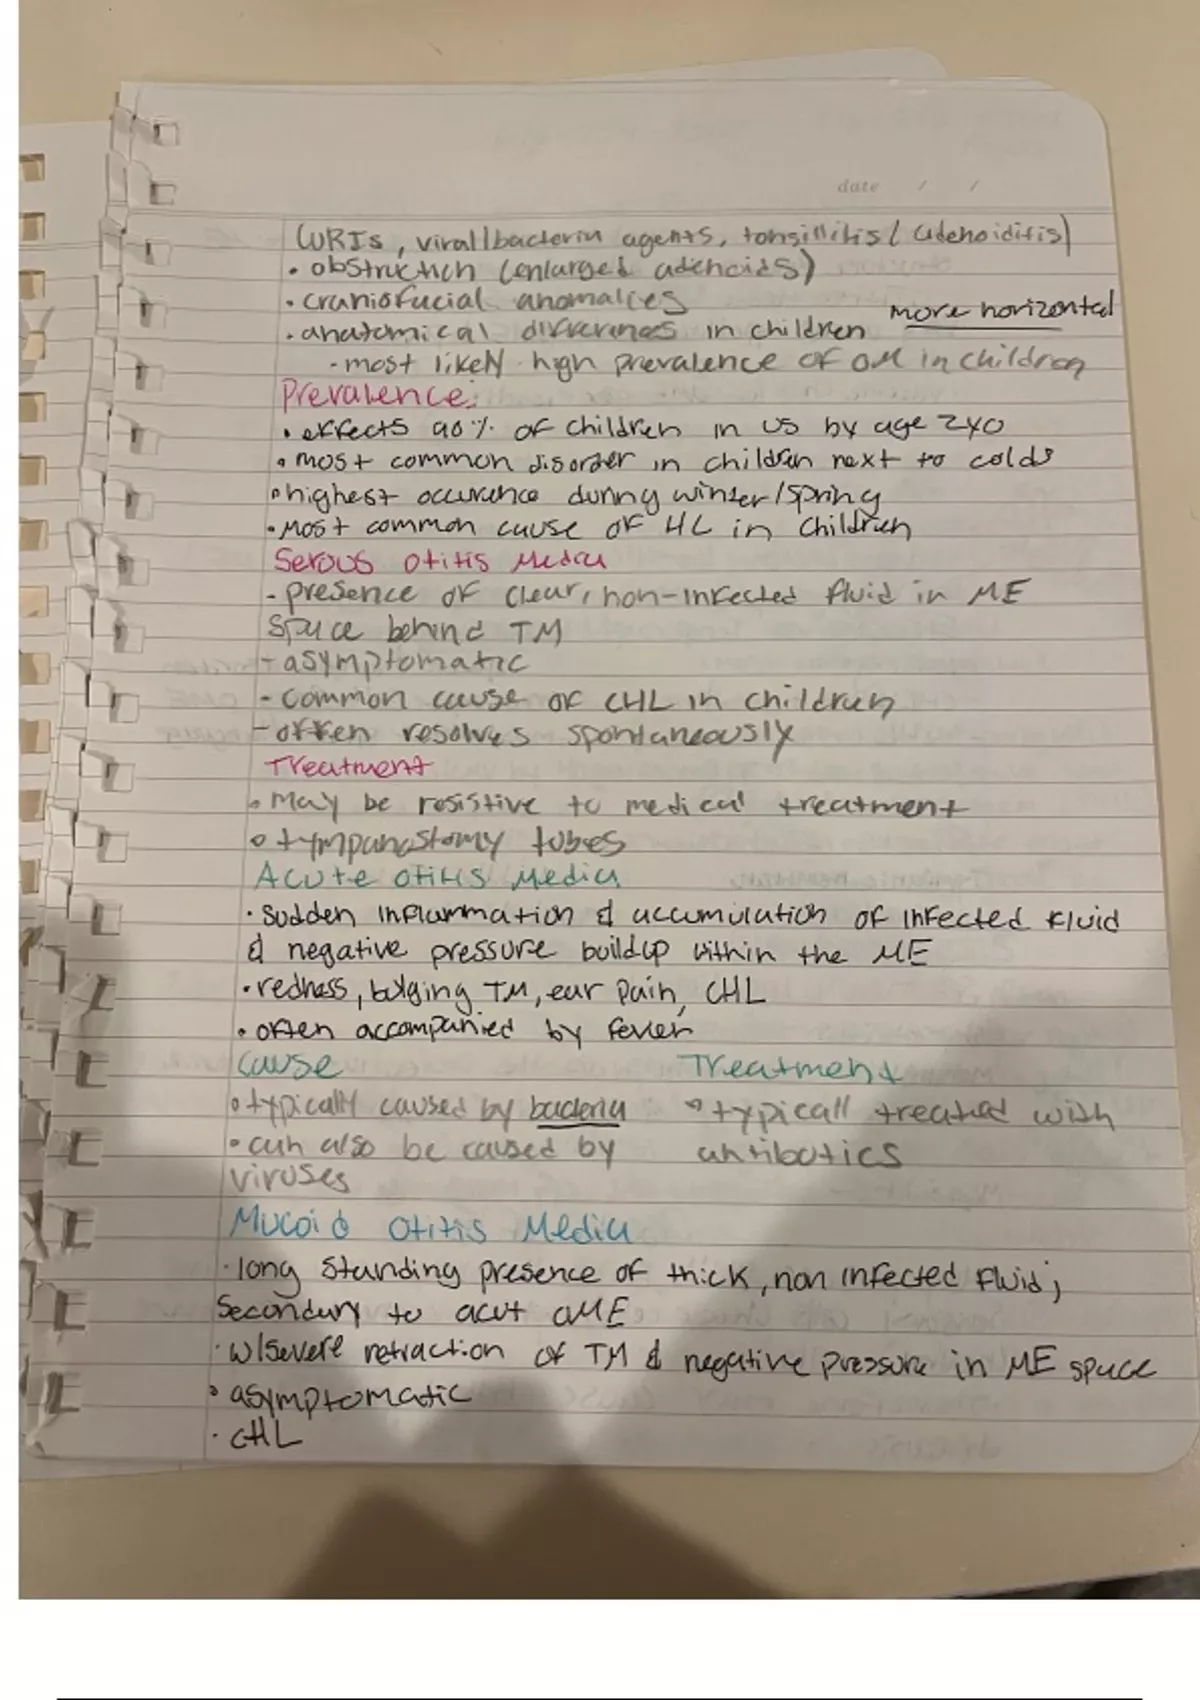 date / /
(URIs, viral/bacteria agents, tonsillitis/adenoiditis)
• obstruction (enlarged adenoids)
• craniofacial anomalies
• anatomical differences in children more horizontal
- most likely high prevalence of OM in children
Prevalence:
• effects 90% of children in US by age 2yo
• most common disorder in children next to colds
• highest occurence during winter/spring
• Most common cause of HL in children
Serous Otitis Media
- presence of clear, non-infected fluid in ME
space behind TM
- asymptomatic
- common cause of CHL in children
- often resolves spontaneously
Treatment
• May be resistive to medical treatment
• tympanostomy tubes
Acute Otitis Media
• Sudden inflammation & accumulation of infected fluid
& negative pressure buildup within the ME
• redness, bulging TM, ear pain, CHL
• often accompanied by fever
Cause Treatment
• typically caused by bacteria • typicall treated with
• can also be caused by antibotics
viruses
Mucoid Otitis Media
• long standing presence of thick, non infected fluid;
Secondary to acut OME
• w/severe retraction of TM & negative pressure in ME space
• asymptomatic
• CHL